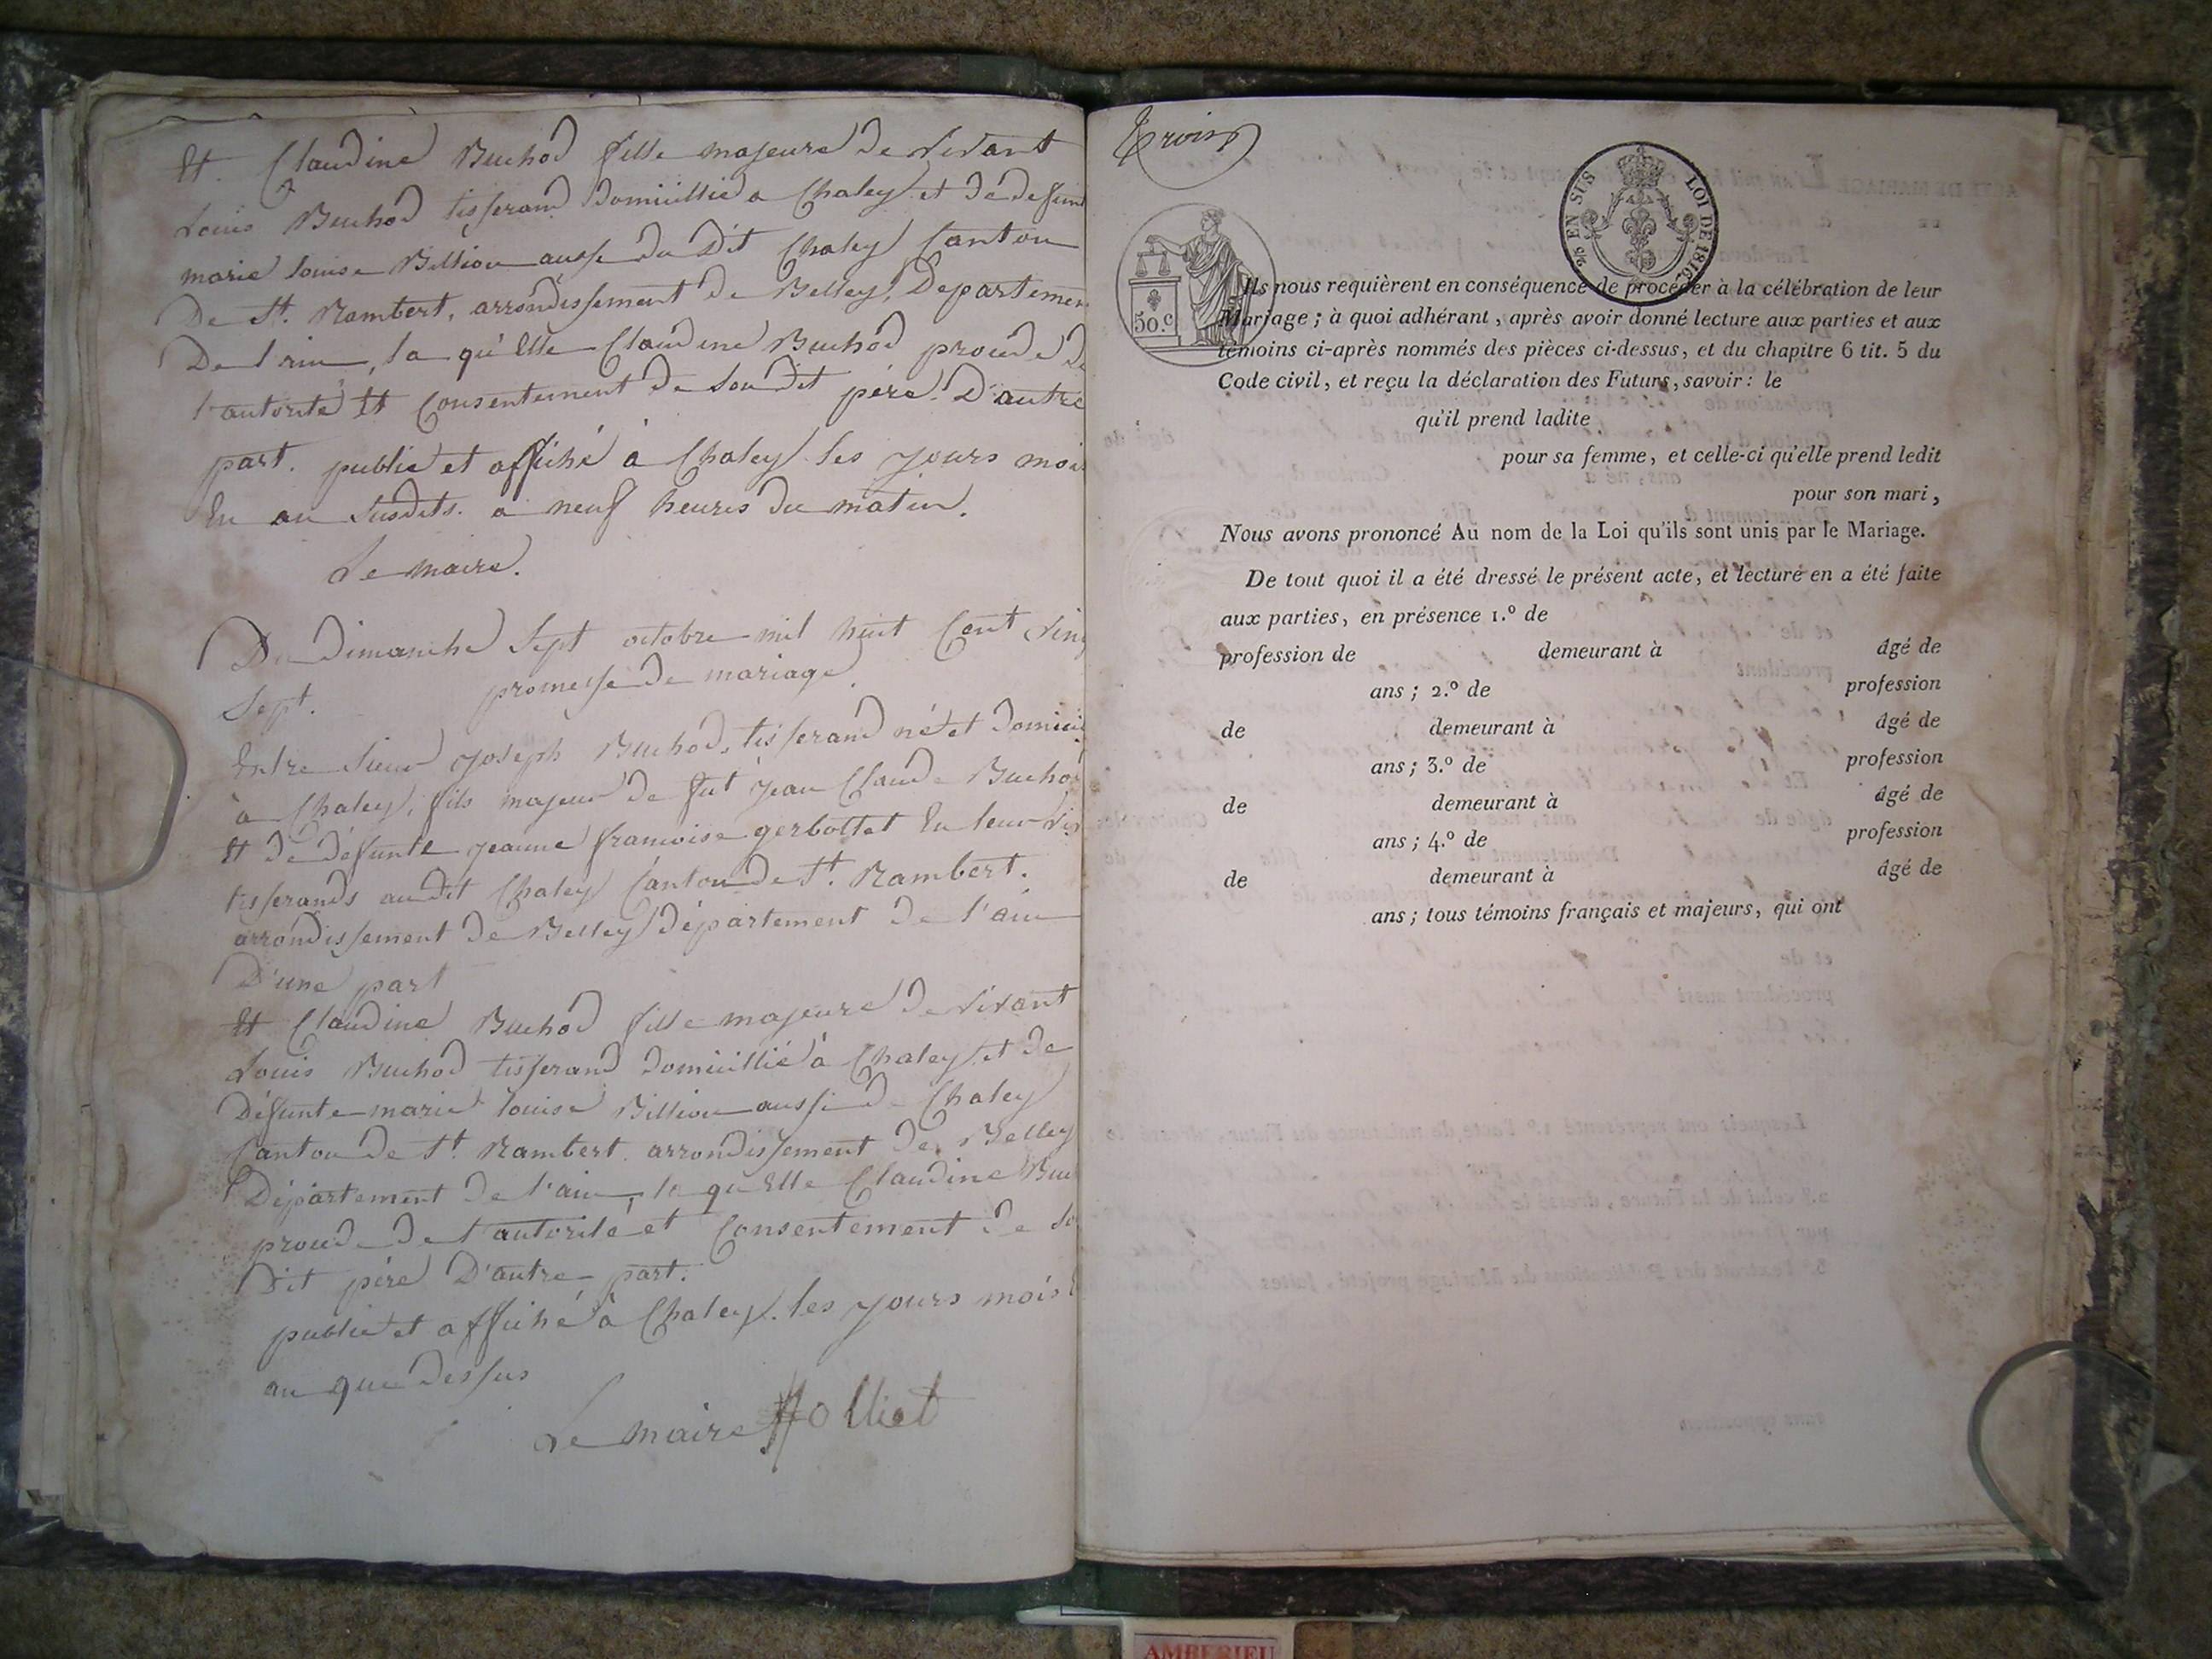 Et Claudine Buchod fille majeure de vivant
Louis Buchod tisserand Domicillié a Chaley et de defun
marie louise Billion aussi du Dit Chaley Canton
De St. Rambert, arrondissement De Belley, Departemen
De l'ain, la qu'Elle Claudine Buchod procede De
l'autorité Et Consentement De Son Dit père D'autre
part. publié et affiché à Chaley les jours mois
En an susdits. a neuf heures Du matin.
Le maire.
Du Dimanche Sept octobre mil huit Cent vin
Sept. promesse De mariage
Entre Sieur joseph Buchod, tisserand né et Domici
à Chaley, fils majeur De fut jean Claude Buchod
Et De Défunte jeanne françoise gerbottet En leur vi
tisserands audit Chaley Canton De St. Rambert.
arrondissement De Belley Département De l'ain
D'une part
Et Claudine Buchod fille majeure De vivant
Louis Buchod tisserand Domicillié à Chaley et De
Défunte marie louise Billion aussi D Chaley
Canton De St. Rambert. arrondissement De Belley
Département De l'ain, la qu'Elle Claudine Buc
procede De l'autorité et Consentement De So
Dit père D'autre part.
publié et affiché à Chaley. les jours mois E
an que Dessus
Le maire Jolliet
Trois
2/10 EN SUS LOI DE 1816.
50.c
Ils nous requièrent en conséquence de procéder à la célébration de leur
Mariage ; à quoi adhérant , après avoir donné lecture aux parties et aux
témoins ci-après nommés des pièces ci-dessus, et du chapitre 6 tit. 5 du
Code civil, et reçu la déclaration des Futurs, savoir : le
qu'il prend ladite
pour sa femme, et celle-ci qu'elle prend ledit
pour son mari,
Nous avons prononcé Au nom de la Loi qu'ils sont unis par le Mariage.
De tout quoi il a été dressé le présent acte, et lecture en a été faite
aux parties, en présence 1.º de
profession de demeurant à âgé de
ans ; 2.º de profession
de demeurant à âgé de
ans ; 3.º de profession
de demeurant à âgé de
ans ; 4.º de profession
de demeurant à âgé de
ans ; tous témoins français et majeurs, qui ont
AMBERIEU